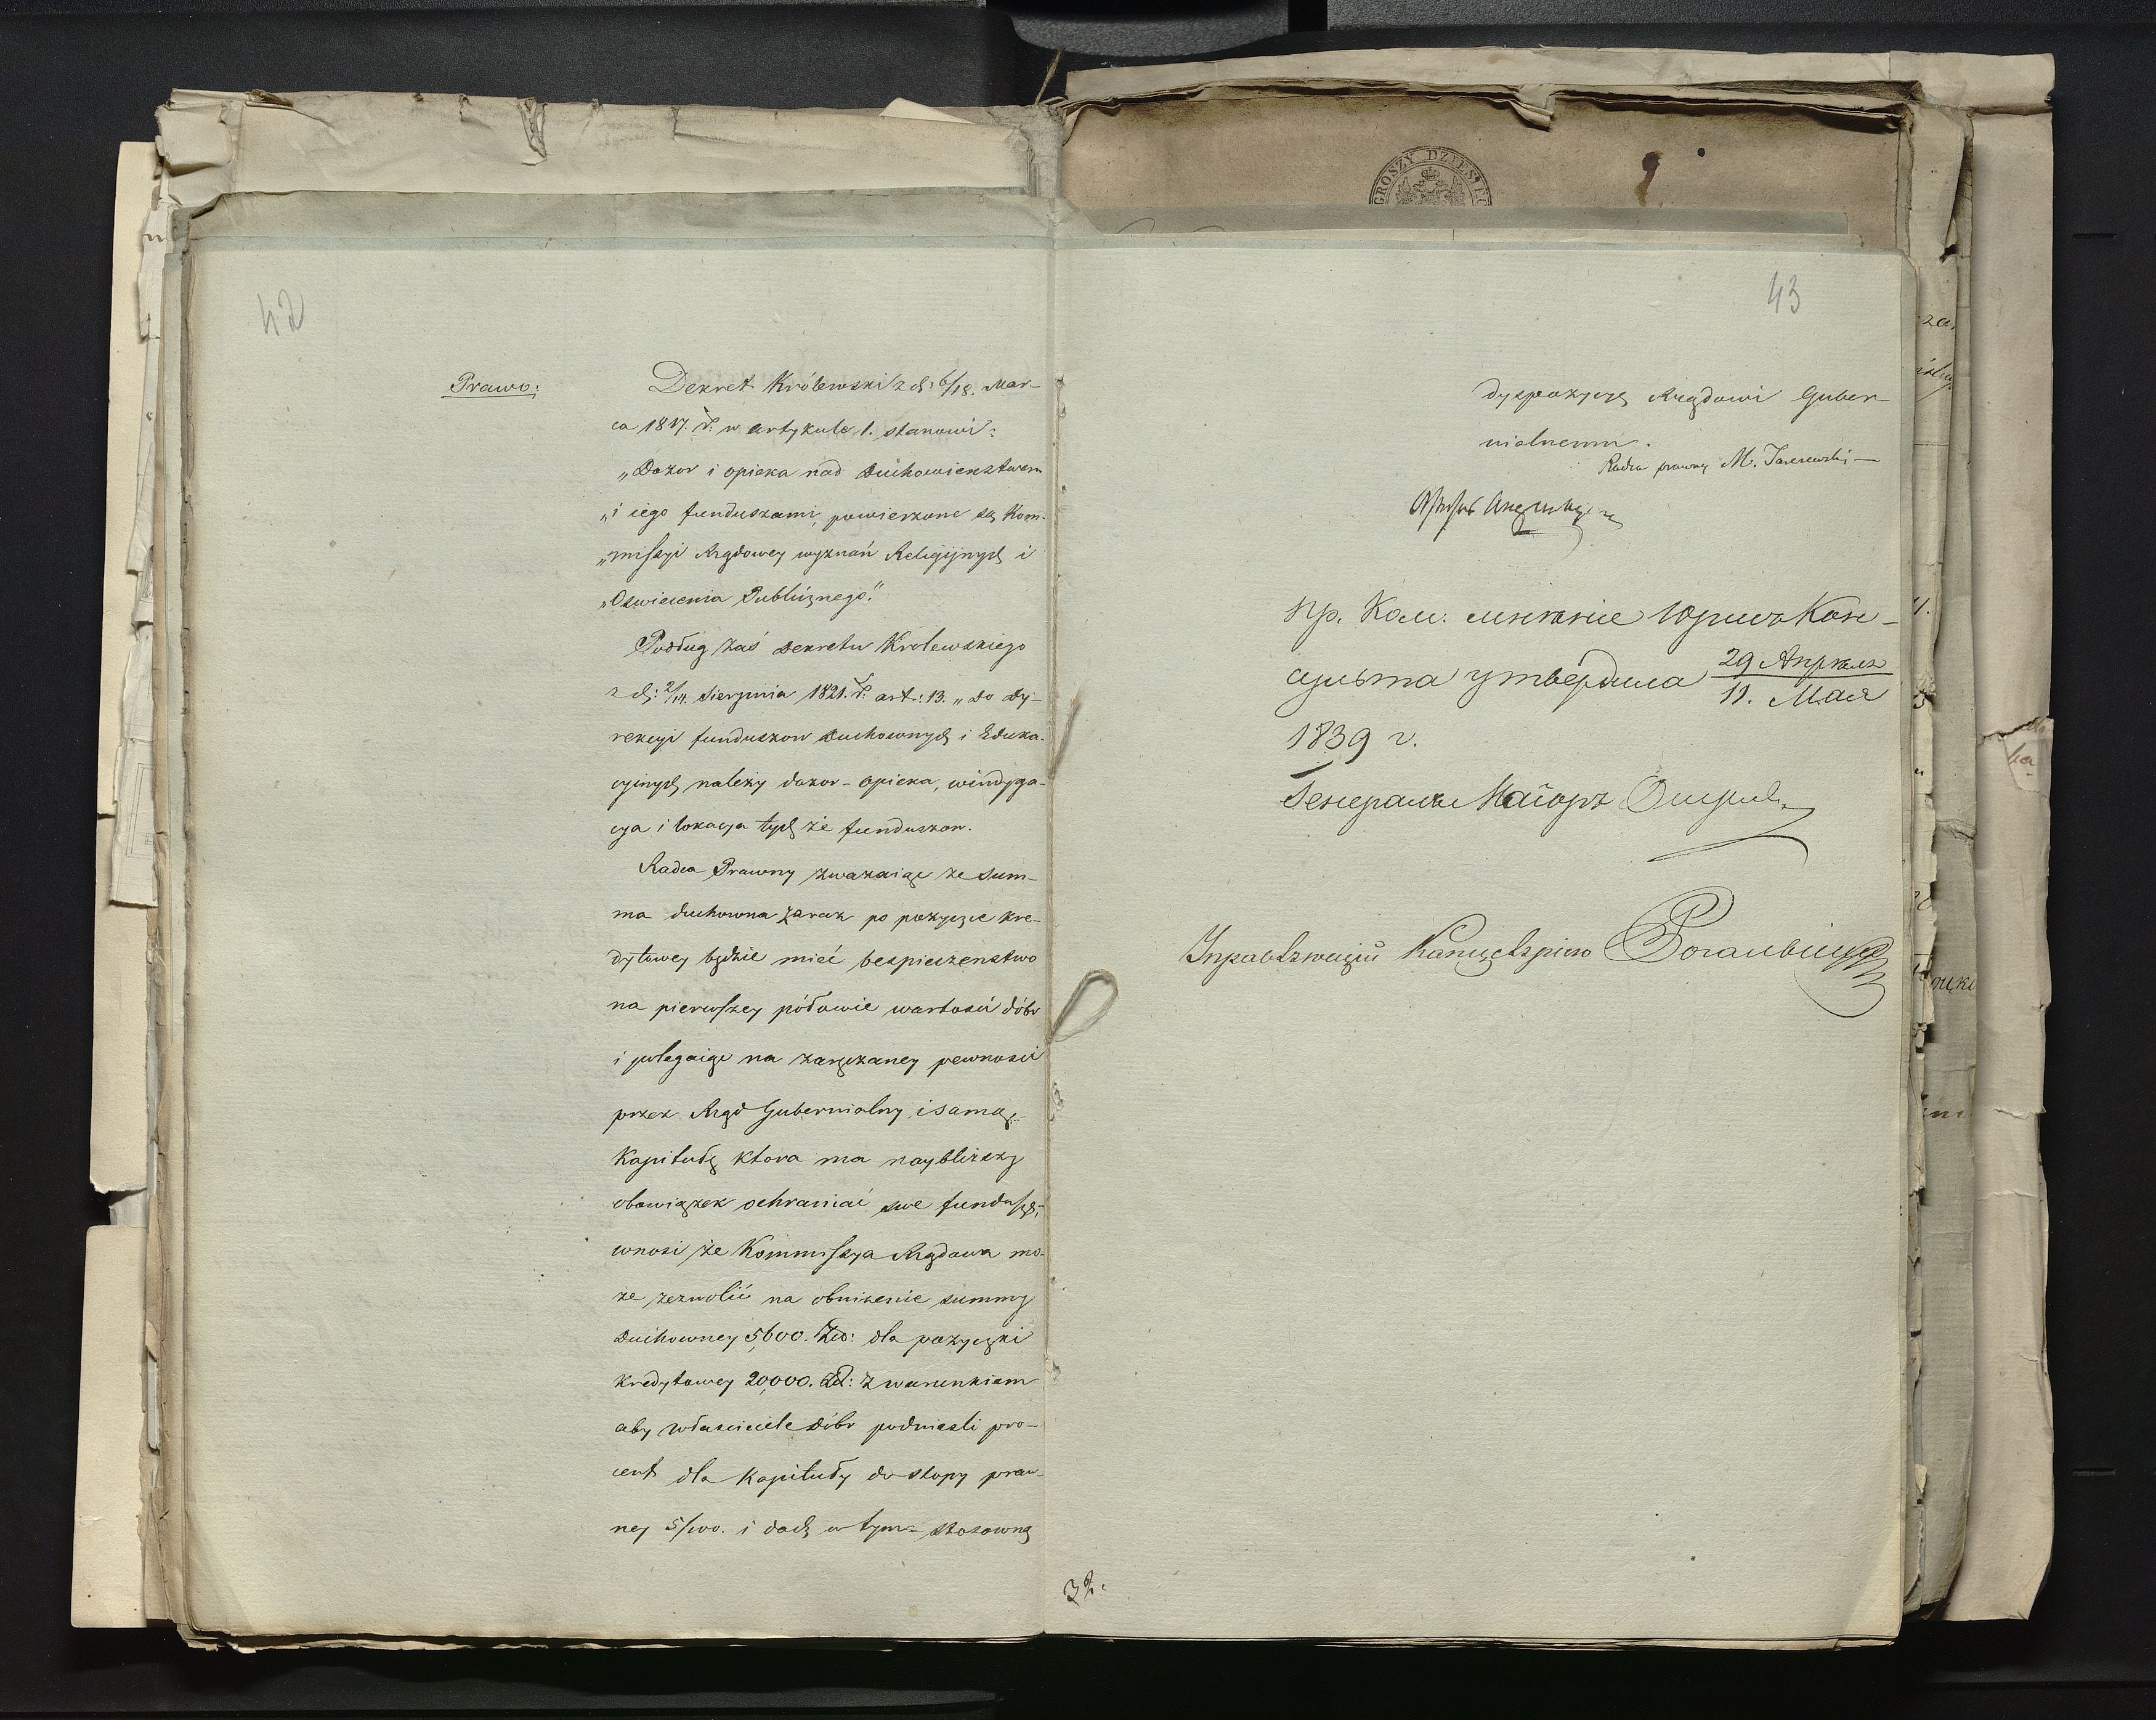 42
Prawo:
Dekret Królewski z d: 6/18. Mar-
ca 1817. r. w artykule 1. stanowi:
„Dozor i opieka nad Duchowienstwem
„i iego funduszami, powierzone są Kom-
„missyi Rządowey wyznań Religijnych i
„Oswiecenia Publicznego."
Podług zaś dekretu Krolewskiego
z d: 2/14. Sierpnia 1821. r. art: 13. „Do Dy-
rekcyi funduszow Duchownych i Eduka-
cyinych należy dozor - opieka, windyka-
cya i lokacya tych że funduszow.
Radca Prawny zwazaiąc ze sum-
ma duchowna zaraz po pożyczce kre-
dytowey będzie mieć bezpieczenstwo
na pierwszey połowie wartości dóbr
i polegaiąc na zaręczaney pewności
przez Rząd Gubernialny i samąż
Kapitułę ktora ma naybliższy
obowiązek ochraniać swe fundusze,
wnosi że Kommissya Rządowa mo-
że zezwolić na obniżenie summy
Duchowney 5,600. Zł: dla pożyczki
kredytowey 20,000. Zł: z warunkiem
aby właściciele dóbr podnieśli pro-
cent dla Kapituły do stopy praw-
ney 5/100. i dadź w tym stosowną
43
GROSZY DZIESIĘC
dyspozycyę Rządowi Guber-
nialnemu.
Radca prawny M.
Пр. Ком. мнѣніе Юрисъ Кон-
сульта утвердила 29 Апрѣля
11. Мая
1839 г.
Генералъ Маіоръ
Управляющій Канцеляріею